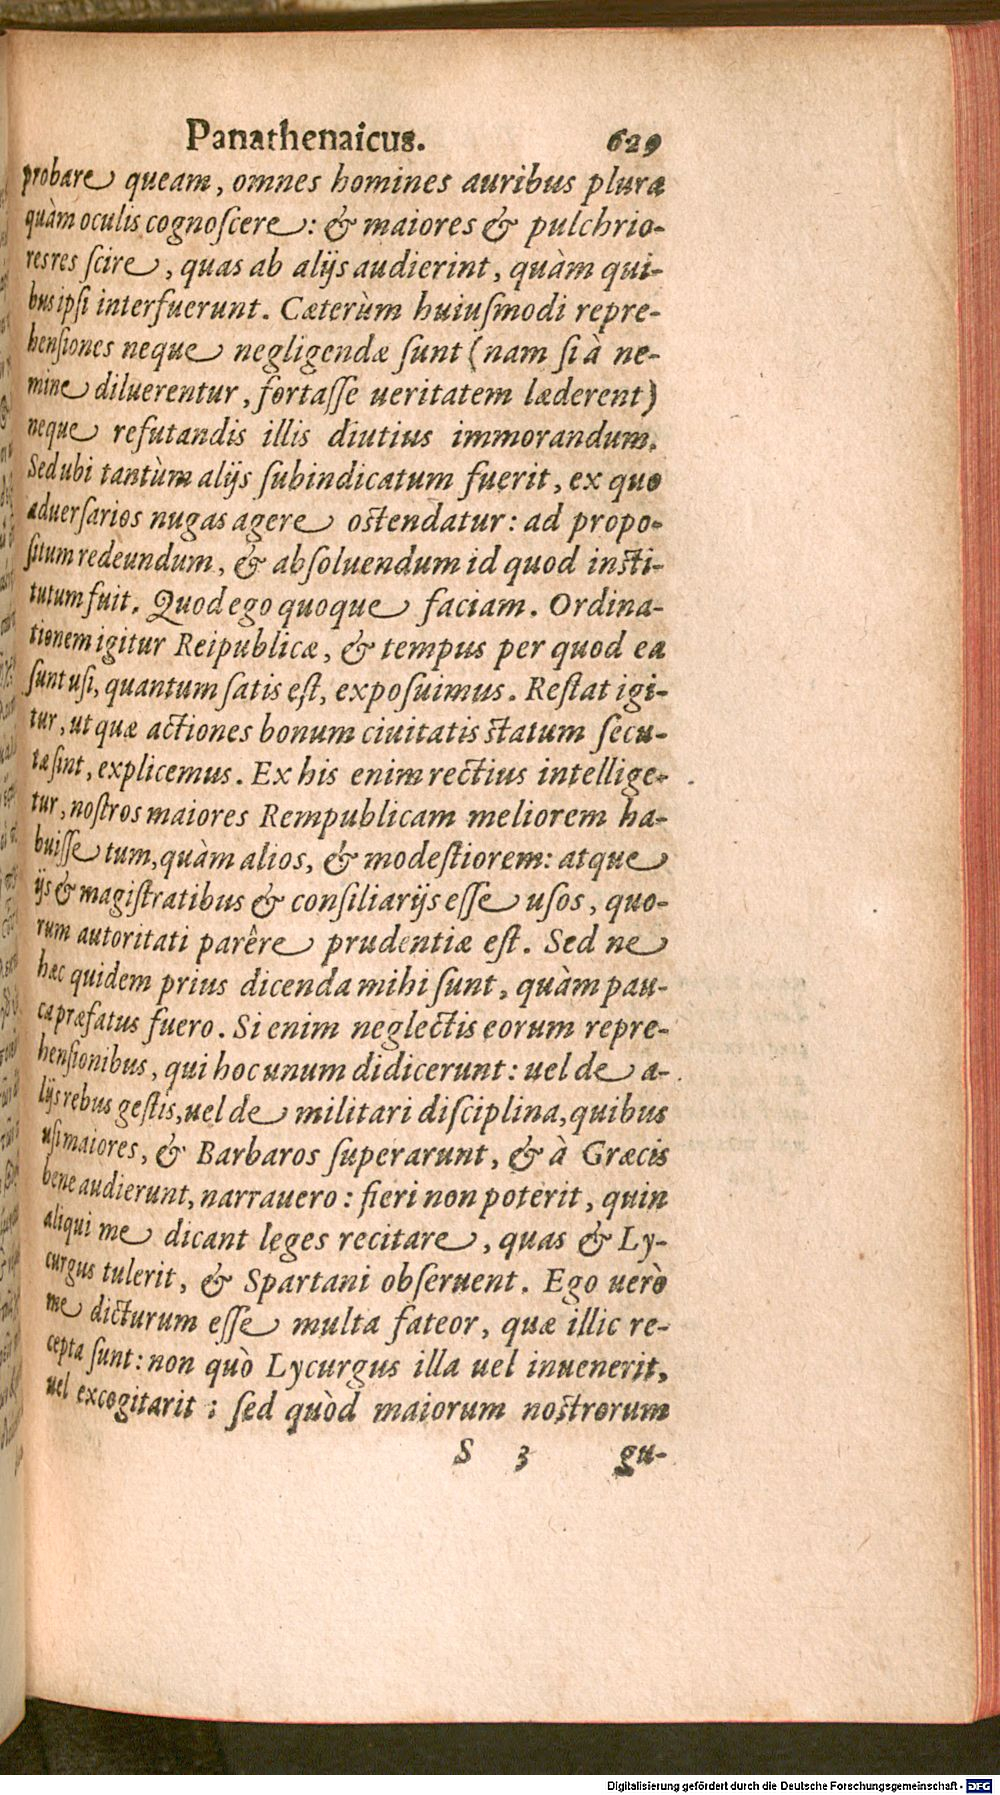 Panathenaicus. 629
probare queam, omnes homines auribus plura
quàm oculis cognoſcere: & maiores & pulchrio-
res res ſcire, quas ab alijs audierint, quàm qui-
bus ipſi interfuerunt. Cæterùm huiuſmodi repre-
henſiones neque negligendæ ſunt (nam ſi à ne-
mine diluerentur, fortaſſe ueritatem læderent)
neque refutandis illis diutius immorandum.
Sed ubi tantùm alijs ſubindicatum fuerit, ex quo
aduerſarios nugas agere oſtendatur: ad propo-
ſitum redeundum, & abſoluendum id quod inſti-
tutum fuit. Quod ego quoque faciam. Ordina-
tionem igitur Reipublicæ, & tempus per quod ea
ſunt uſi, quantum ſatis eſt, expoſuimus. Reſtat igi-
tur, ut quæ actiones bonum ciuitatis ſtatum ſecu-
tæ ſint, explicemus. Ex his enim rectius intellige-
tur, noſtros maiores Rempublicam meliorem ha-
buiſſe tum, quàm alios, & modeſtiorem: atque
ijs & magiſtratibus & conſiliarijs eſſe uſos, quo-
rum autoritati parêre prudentiæ eſt. Sed ne
hæc quidem prius dicenda mihi ſunt, quàm pau-
ca præfatus fuero. Si enim neglectis eorum repre-
henſionibus, qui hoc unum didicerunt: uel de a-
lijs rebus geſtis, uel de militari diſciplina, quibus
uſi maiores, & Barbaros ſuperarunt, & à Græcis
bene audierunt, narrauero: fieri non poterit, quin
aliqui me dicant leges recitare, quas & Ly-
curgus tulerit, & Spartani obſeruent. Ego uerò
me dicturum eſſe multa fateor, quæ illic re-
cepta ſunt: non quò Lycurgus illa uel inuenerit,
uel excogitarit: ſed quòd maiorum noſtrorum
S 3 gu-
Digitalisierung gefördert durch die Deutsche Forschungsgemeinschaft - DFG